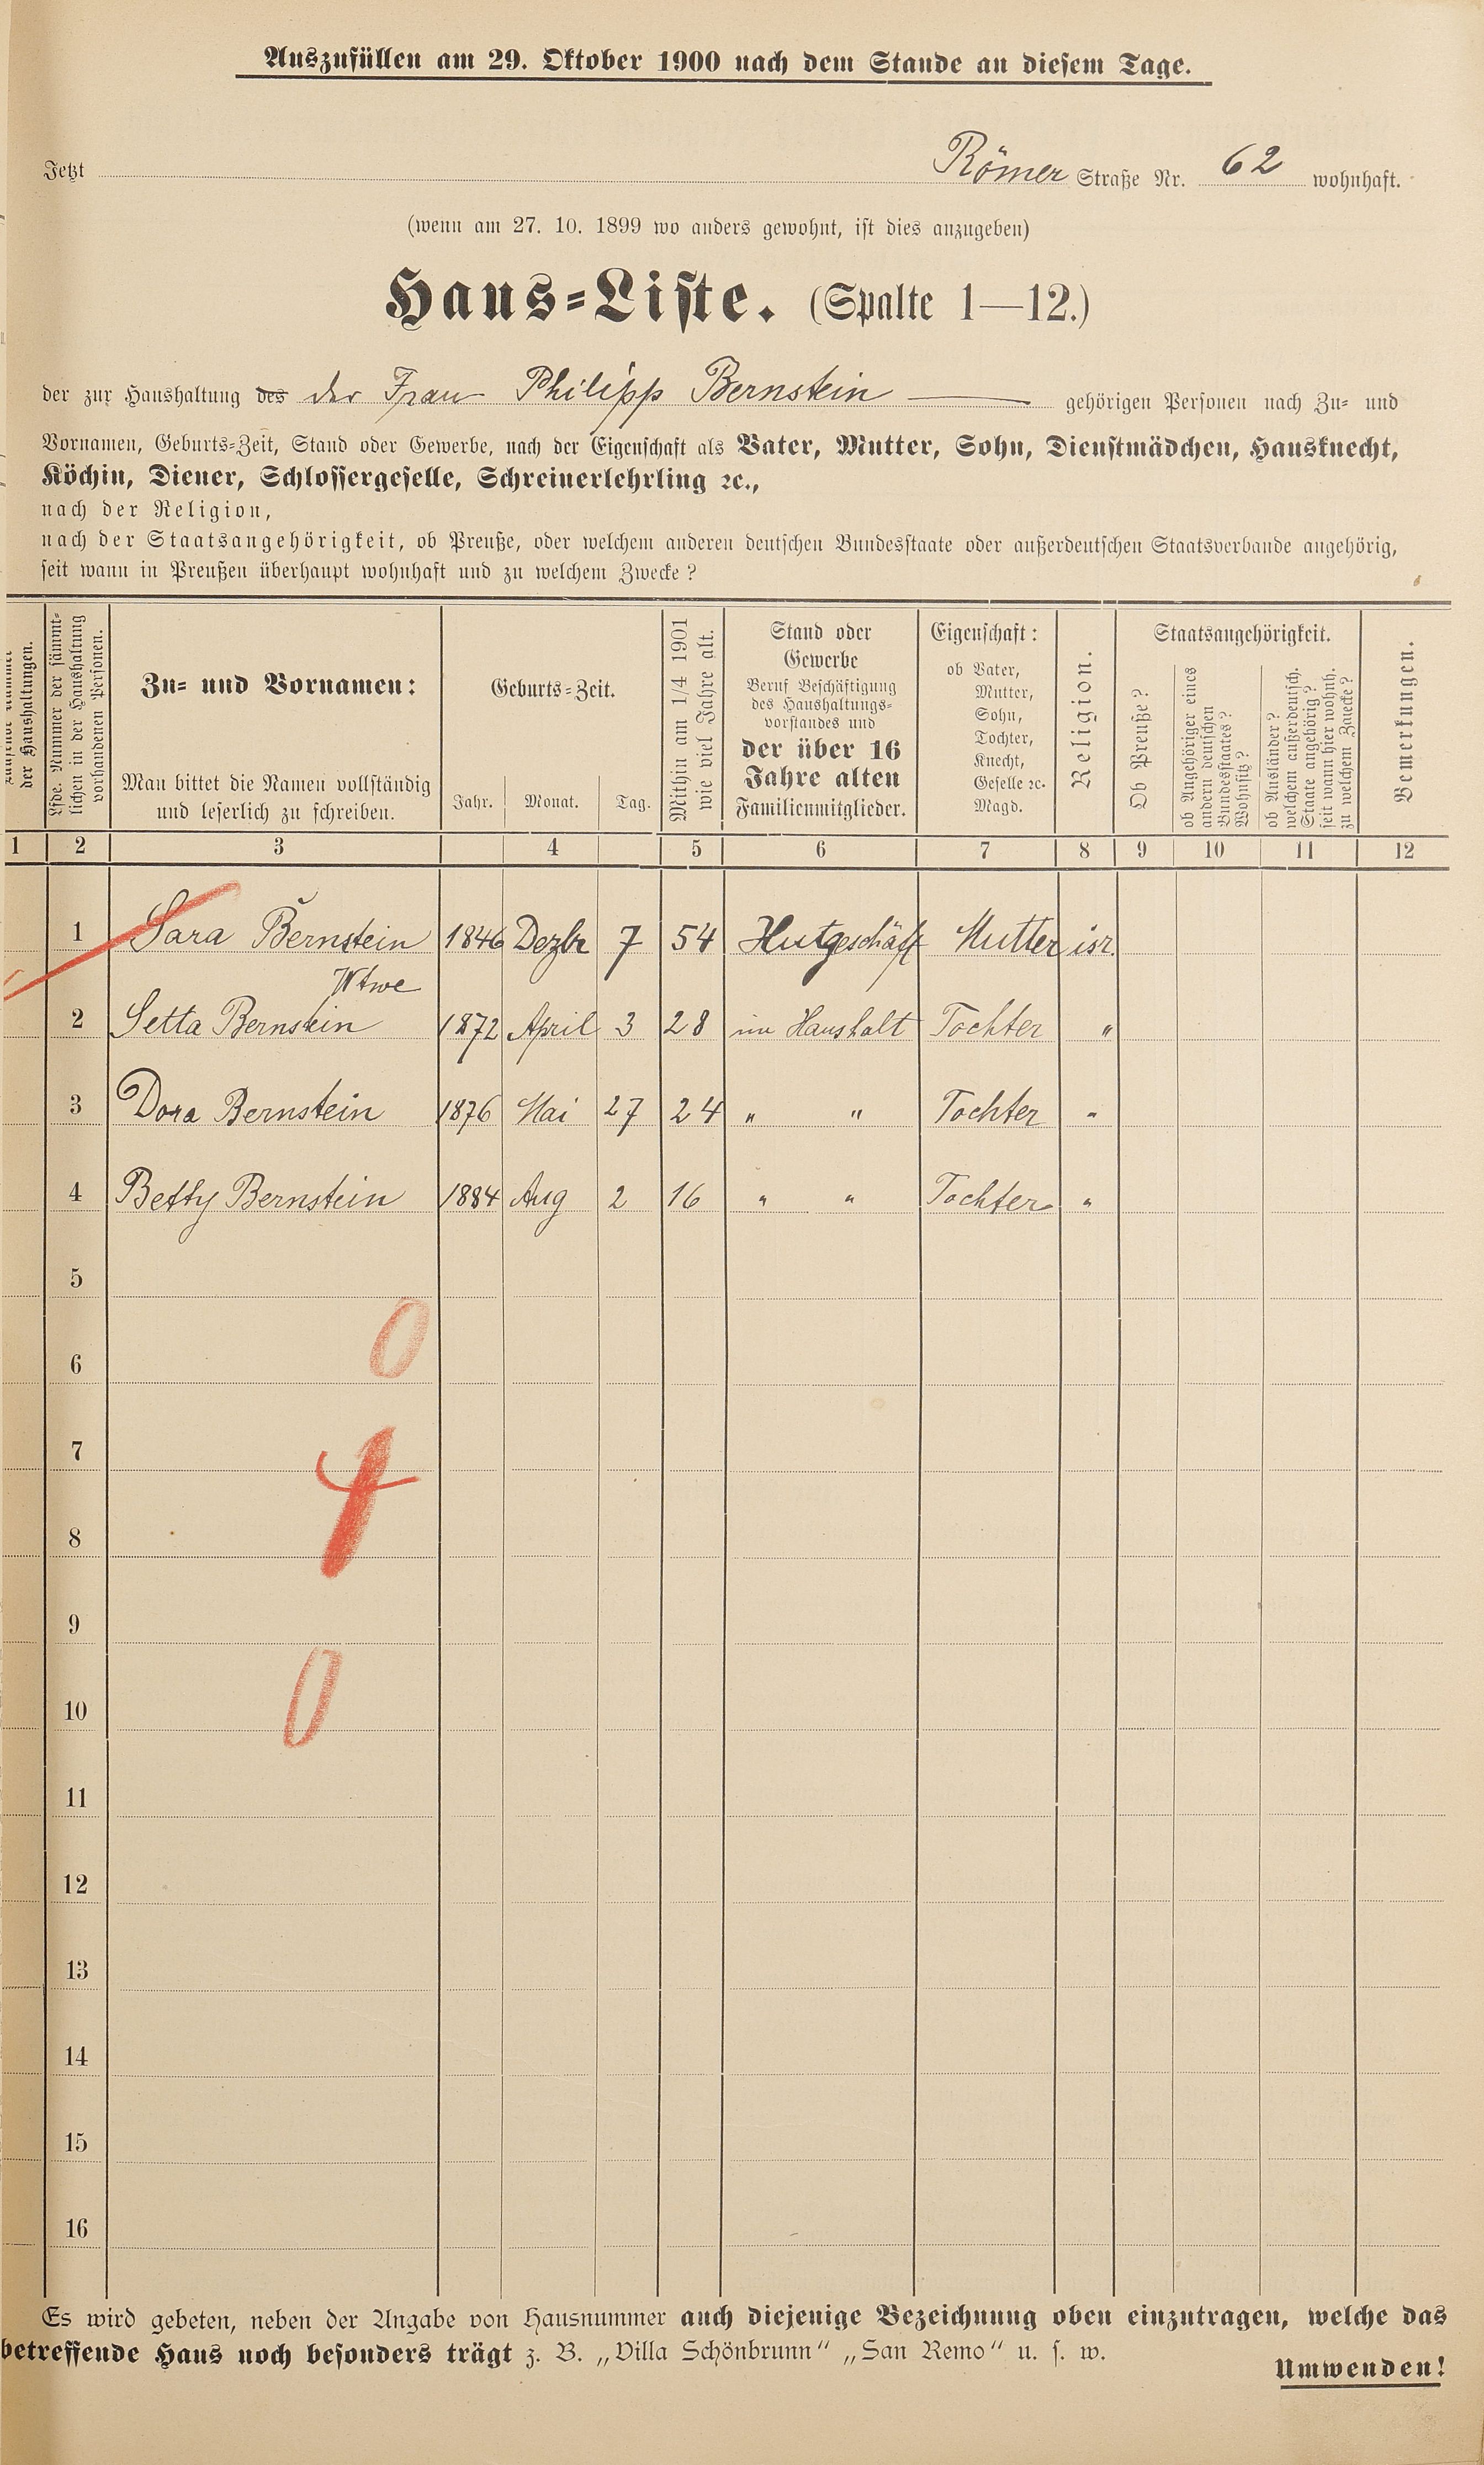 Auszufüllen am 29. Oktober 1900 nach dem Stande an diesem Tage.
Jetzt Römer Straße Nr. 62 wohnhaft.
(wenn am 27. 10. 1899 wo anders gewohnt, ist dies anzugeben)
Haus-Liste. (Spalte 1—12.)
der zur Haushaltung des der Frau Philipp Bernstein gehörigen Personen nach Zu- und
Vornamen, Geburts-Zeit, Stand oder Gewerbe, nach der Eigenschaft als Vater, Mutter, Sohn, Dienstmädchen, Hausknecht,
Köchin, Diener, Schlossergeselle, Schreinerlehrling ꝛc.,
nach der Religion,
nach der Staatsangehörigkeit, ob Preuße, oder welchem anderen deutschen Bundesstaate oder außerdeutschen Staatsverbande angehörig,
seit wann in Preußen überhaupt wohnhaft und zu welchem Zwecke?
der Haushaltungen.
Lfde. Nummer der sämmt-
lichen in der Haushaltung
vorhandenen Personen.
Zu- und Vornamen:
Man bittet die Namen vollständig
und leserlich zu schreiben.
Geburts-Zeit.
Jahr. Monat. Tag.
Mithin am 1/4 1901
wie viel Jahre alt.
Stand oder
Gewerbe
Beruf Beschäftigung
des Haushaltungs-
vorstandes und
der über 16
Jahre alten
Familienmitglieder.
Eigenschaft:
ob Vater,
Mutter,
Sohn,
Tochter,
Knecht,
Geselle ꝛc.
Magd.
Religion.
Staatsangehörigkeit.
Ob Preuße?
ob Angehöriger eines
andern deutschen
Bundesstaates?
Wohnsitz?
ob Ausländer?
welchem außerdeutsch.
Staate angehörig?
seit wann hier wohnh.
zu welchem Zwecke?
Bemerkungen.
1 2 3 4 5 6 7 8 9 10 11 12
1 Sara Bernstein 1846 Dezbr 7 54 Hutgeschäft Mutter isr.
Wtwe
2 Setta Bernstein 1872 April 3 28 im Haushalt Tochter "
3 Dora Bernstein 1876 Mai 27 24 " " Tochter "
4 Betty Bernstein 1884 Aug 2 16 " " Tochter "
5
0
6
7
4
8
9
0
10
11
12
13
14
15
16
Es wird gebeten, neben der Angabe von Hausnummer auch diejenige Bezeichnung oben einzutragen, welche das
betreffende Haus noch besonders trägt z. B. „Villa Schönbrunn“ „San Remo“ u. s. w.
Umwenden!